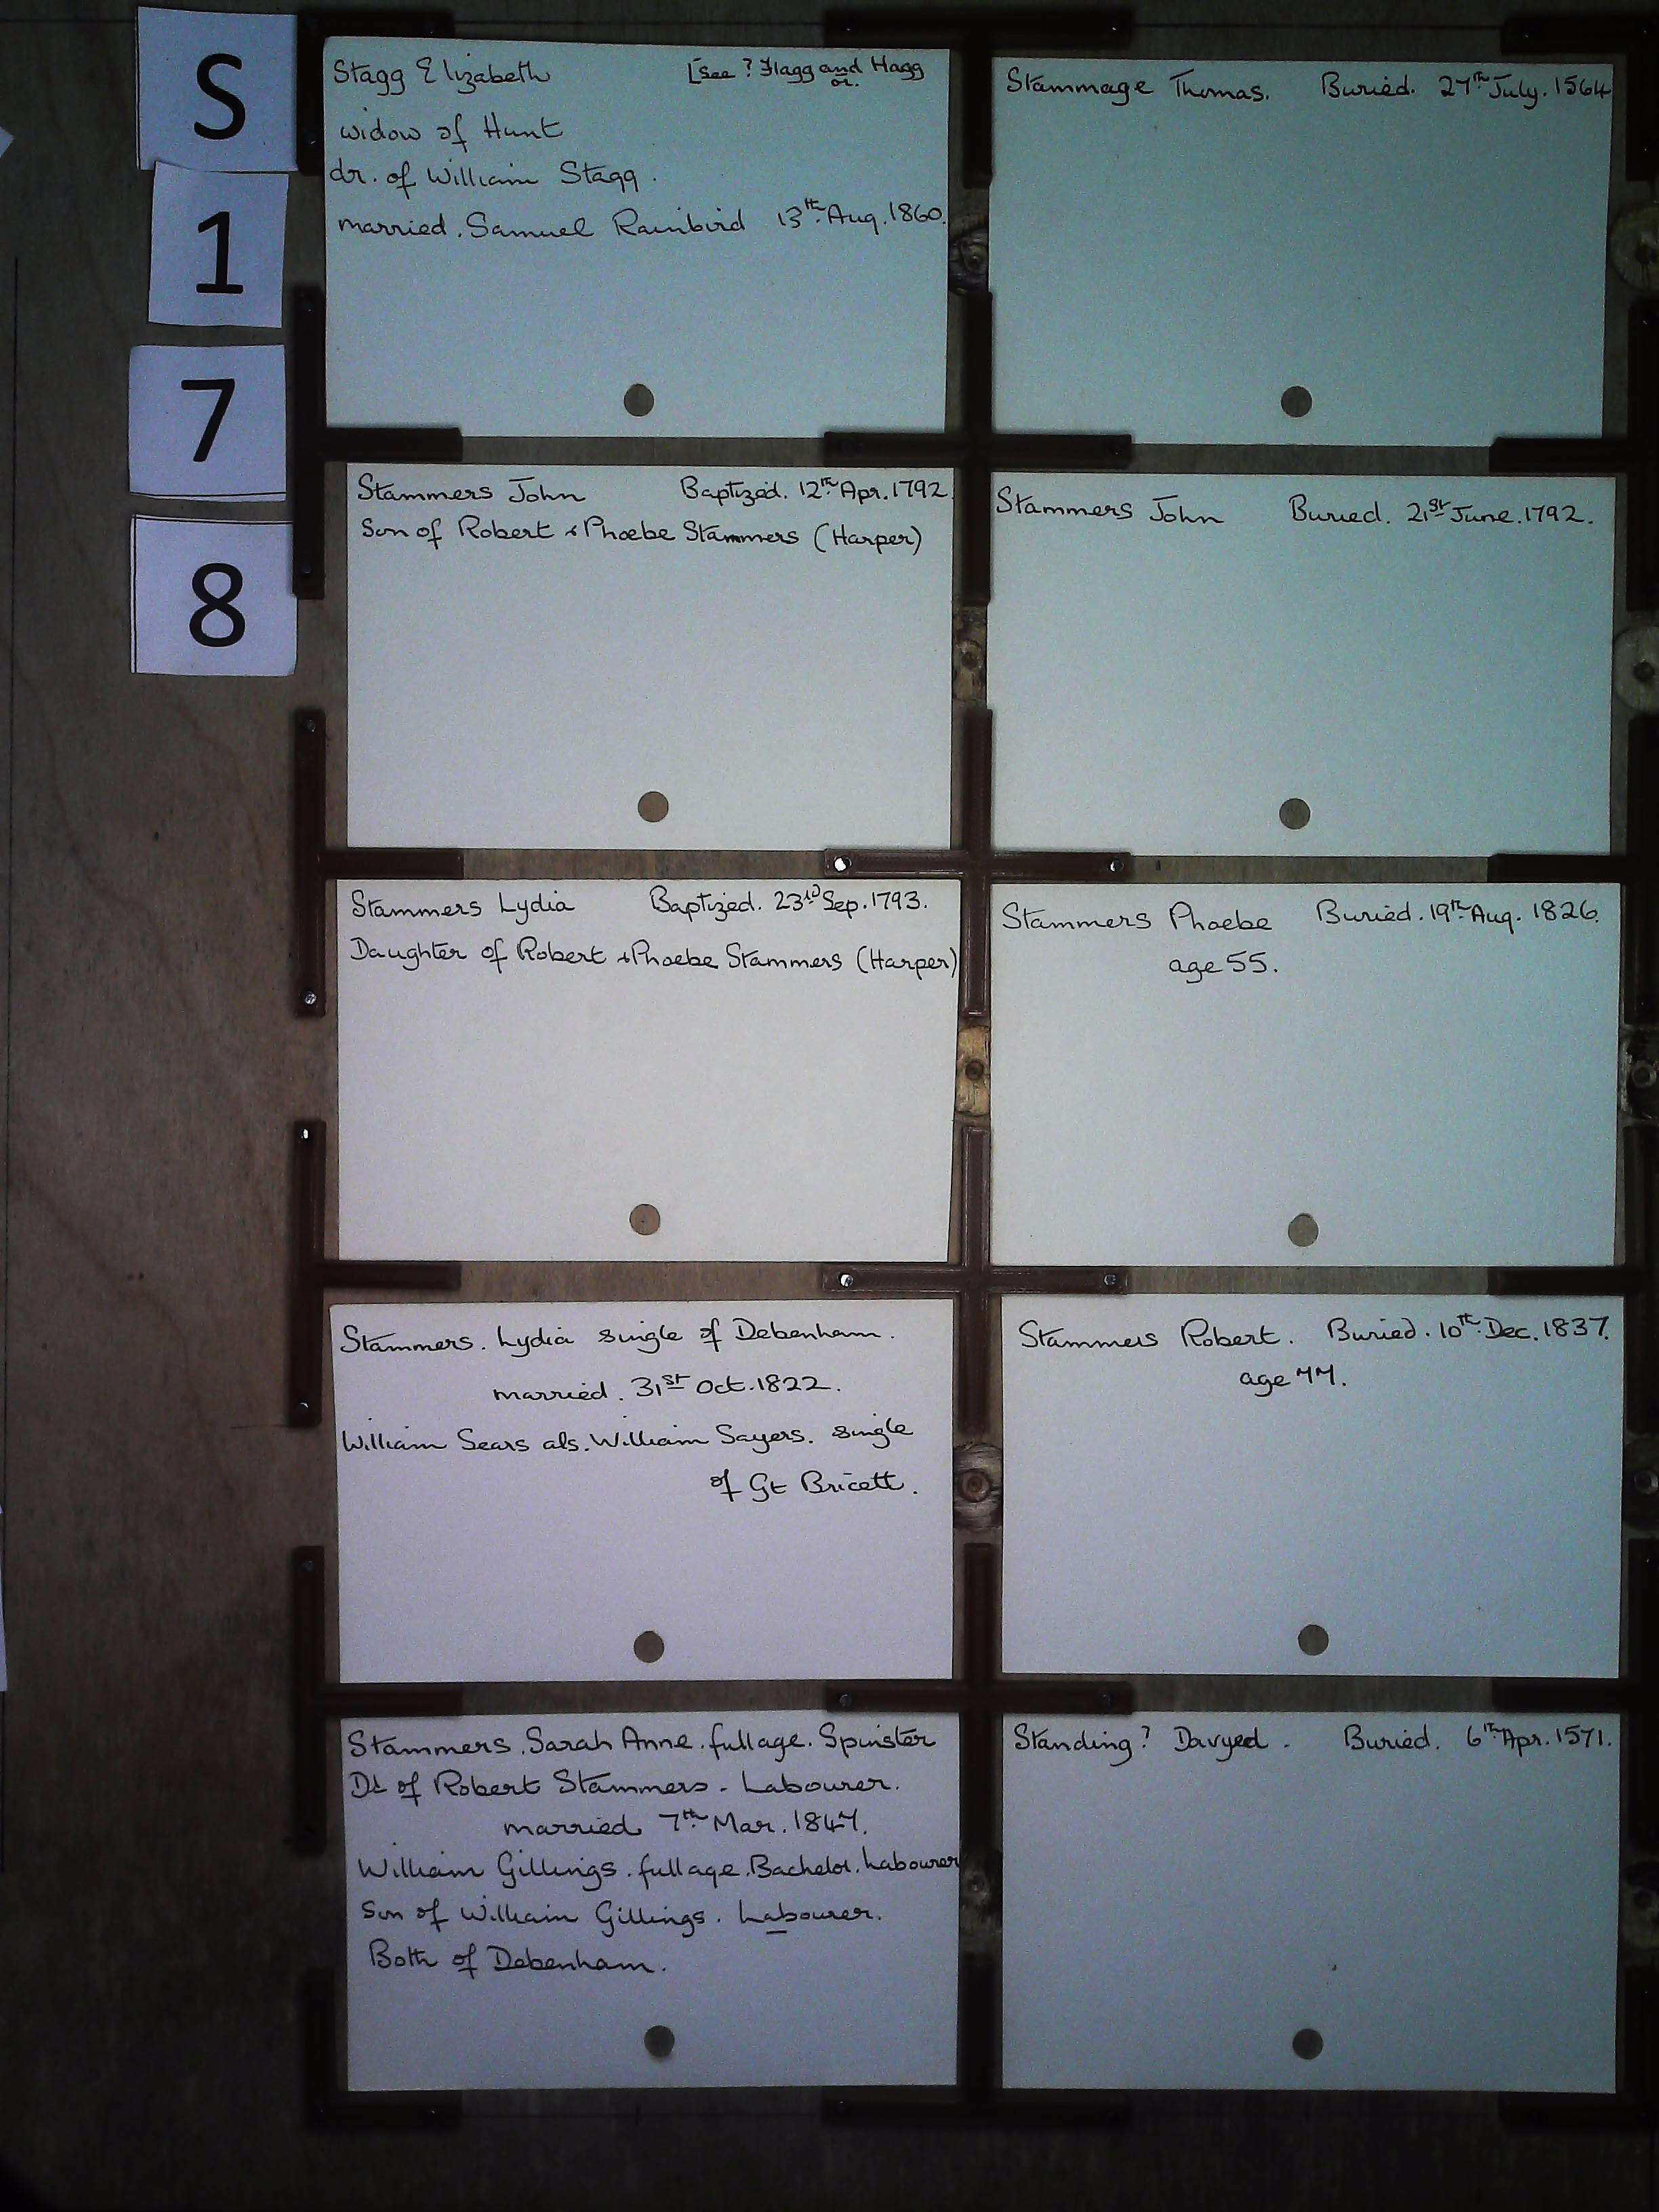 S
1
7
8
Stagg Elizabeth [see ? Flagg and Hagg
or.
widow of Hunt
dr. of William Stagg.
married. Samuel Rainbird 13th Aug. 1860.
Stammage Thomas. Buried. 27th July. 1564
Stammers John Baptized. 12th Apr. 1792.
Son of Robert & Phoebe Stammers (Harper)
Stammers John Buried. 21st June. 1792.
Stammers Lydia Baptized. 23rd Sep. 1793.
Daughter of Robert & Phoebe Stammers (Harper)
Stammers Phoebe Buried. 19th Aug. 1826.
age 55.
Stammers. Lydia single of Debenham.
married. 31st Oct. 1822.
William Sears als. William Sayers. single
of Gt Bricett.
Stammers Robert. Buried. 10th Dec. 1837.
age 77.
Stammers. Sarah Anne. full age. Spinster
Dt of Robert Stammers - Labourer.
married 7th Mar. 1847.
William Gillings. full age. Bachelor. Labourer
Son of William Gillings. Labourer.
Both of Debenham.
Standing? Davyed. Buried. 6th Apr. 1571.